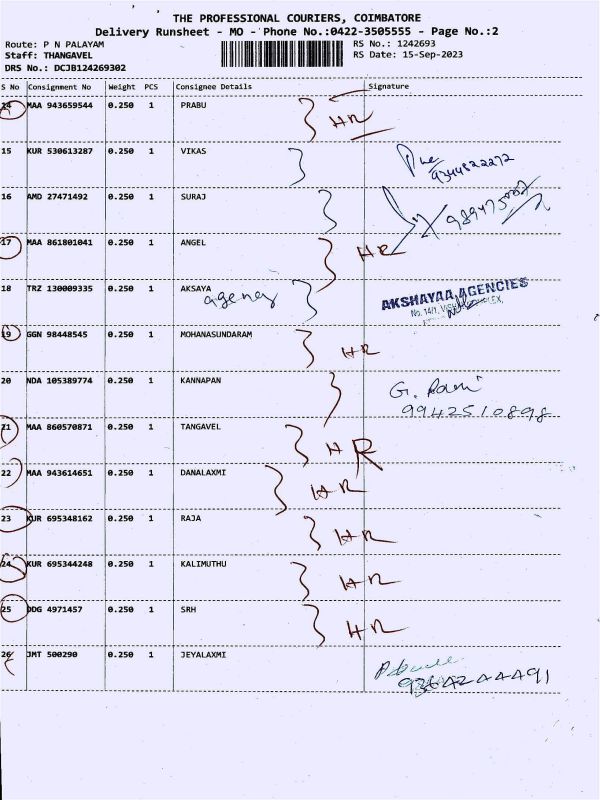 THE PROFESSIONAL COURIERS, COIMBATORE
Delivery Runsheet - MO - Phone No.:0422-3505555 - Page No.:2
Route: P N PALAYAM
RS No.: 1242693
Staff: THANGAVEL
RS Date: 15-Sep-2023
DRS No.: DCJB124269302
S No Consignment No Weight PCS Consignee Details Signature
14 MAA 943659544 0.250 1 PRABU HR
15 KUR 530613287 0.250 1 VIKAS
9344822272
16 AMD 27471492 0.250 1 SURAJ
17 MAA 861801041 0.250 1 ANGEL HR
18 TRZ 130009335 0.250 1 AKSAYA agency
AKSHAYAA AGENCIES
19 GGN 98448545 0.250 1 MOHANASUNDARAM HR
20 NDA 105389774 0.250 1 KANNAPAN
9942510898
21 MAA 860570871 0.250 1 TANGAVEL HR
22 MAA 943614651 0.250 1 DANALAXMI HR
23 KUR 695348162 0.250 1 RAJA HR
24 KUR 695344248 0.250 1 KALIMUTHU HR
25 DDG 4971457 0.250 1 SRH HR
26 JMT 500290 0.250 1 JEYALAXMI